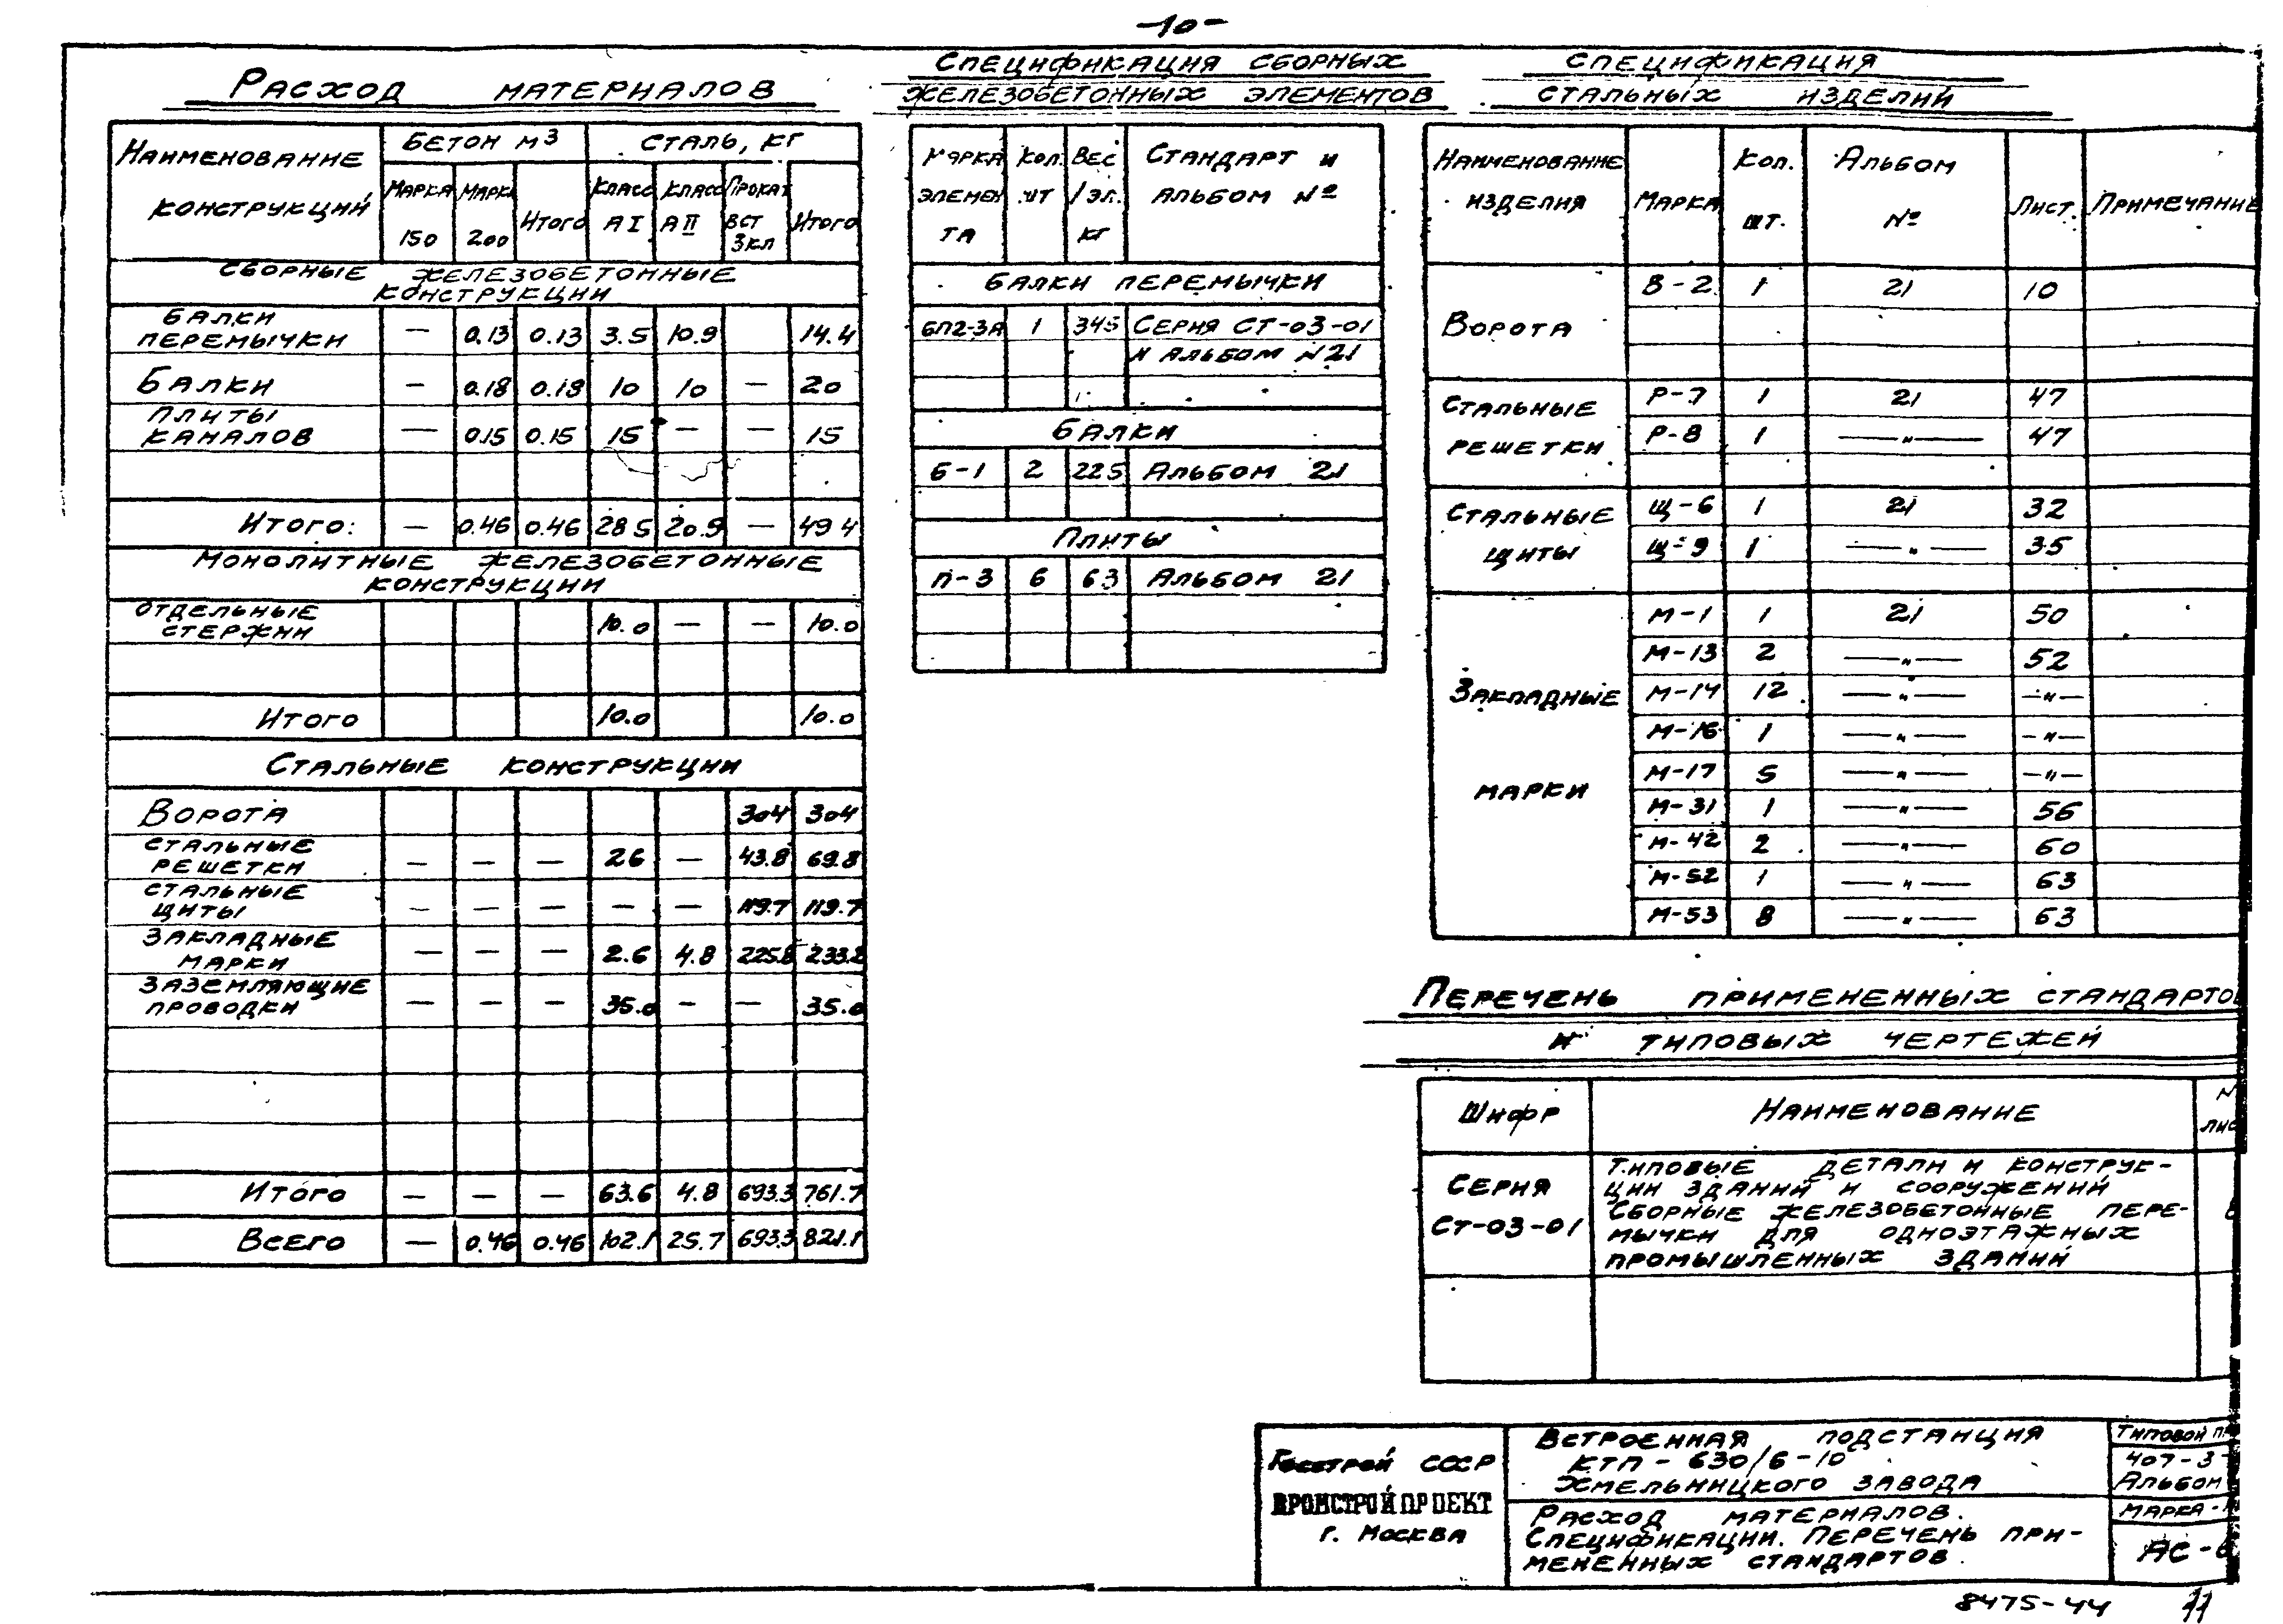 -10-
Расход материалов
Наименование конструкций | Бетон м3 | Сталь, кг
Марка 150 | Марка 200 | Итого | Класс А I | Класс А II | Прокат ВСТ 3кл | Итого
Сборные железобетонные конструкции
Балки перемычки | — | 0.13 | 0.13 | 3.5 | 10.9 | | 14.4
Балки | — | 0.18 | 0.18 | 10 | 10 | — | 20
Плиты каналов | — | 0.15 | 0.15 | 15 | — | — | 15
Итого: | — | 0.46 | 0.46 | 28 5 | 20.9 | — | 49 4
Монолитные железобетонные конструкции
Отдельные стержни | | | | 10.0 | — | — | 10.0
Итого | | | | 10.0 | | | 10.0
Стальные конструкции
Ворота | | | | | | 304 | 304
Стальные решетки | — | — | — | 26 | — | 43.8 | 69.8
Стальные щиты | — | — | — | — | — | 119.7 | 119.7
Закладные марки | — | — | — | 2.6 | 4.8 | 225.8 | 233.2
Заземляющие проводки | — | — | — | 35.0 | — | — | 35.0
Итого | — | — | — | 63.6 | 4.8 | 693.3 | 761.7
Всего | — | 0.46 | 0.46 | 102.1 | 25.7 | 693.3 | 821.1
Спецификация сборных
железобетонных элементов
Марка элемента | Кол. шт | Вес 1 эл. кг | Стандарт и альбом №
Балки перемычки
БП2-3А | 1 | 345 | Серия СТ-03-01
и альбом №21
Балки
Б-1 | 2 | 225 | Альбом 21
Плиты
П-3 | 6 | 63 | Альбом 21
Спецификация
стальных изделий
Наименование изделия | Марка | Кол. шт. | Альбом № | Лист. | Примечание
Ворота | В-2 | 1 | 21 | 10
Стальные решетки | Р-7 | 1 | 21 | 47
Р-8 | 1 | —"— | 47
Стальные щиты | Щ-6 | 1 | 21 | 32
Щ-9 | 1 | —"— | 35
Закладные марки | М-1 | 1 | 21 | 50
М-13 | 2 | —"— | 52
М-14 | 12 | —"— | —"—
М-16 | 1 | —"— | —"—
М-17 | 5 | —"— | —"—
М-31 | 1 | —"— | 56
М-42 | 2 | —"— | 60
М-52 | 1 | —"— | 63
М-53 | 8 | —"— | 63
Перечень примененных стандартов
и типовых чертежей
Шифр | Наименование
Серия Ст-03-01
Типовые детали и конструк-
ции зданий и сооружений
Сборные железобетонные пере-
мычки для одноэтажных
промышленных зданий
Госстрой СССР
Промстройпроект
г. Москва
Встроенная подстанция
КТП-630/6-10
Хмельницкого завода
Расход материалов.
Спецификации. Перечень при-
мененных стандартов.
Типовой
407-3-
Альбом
Марка-
АС-
8475-44 11